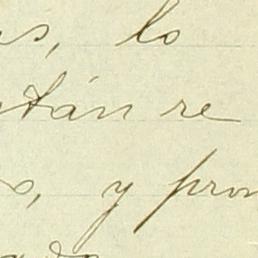 s, lo
tán re
o, y pron